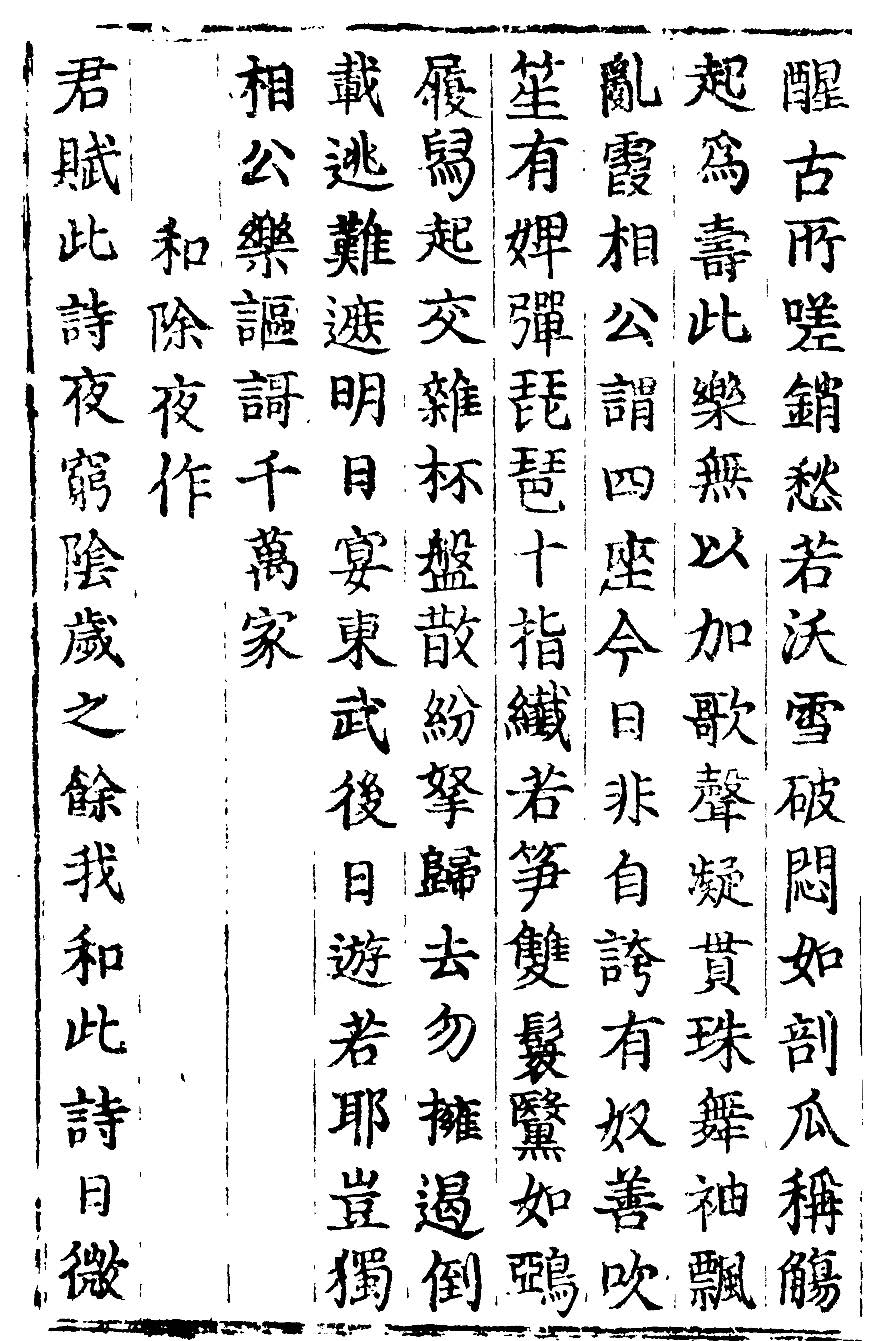 醒古所嗟銷愁若沃雪破悶如剖瓜稱觴
起為壽此樂無以加歌聲凝貫珠舞袖飄
亂霞相公謂四座今日非自誇有奴善吹
笙有婢彈琵琶十指纖若笋雙鬟黳如鵶
履舄起交雜杯盤散紛拏歸去勿擁遏倒
載逃難遮明日宴東武後日遊若耶豈獨
相公樂謳謌千萬家
和除夜作
君賦此詩夜窮陰歲之餘我和此詩日微